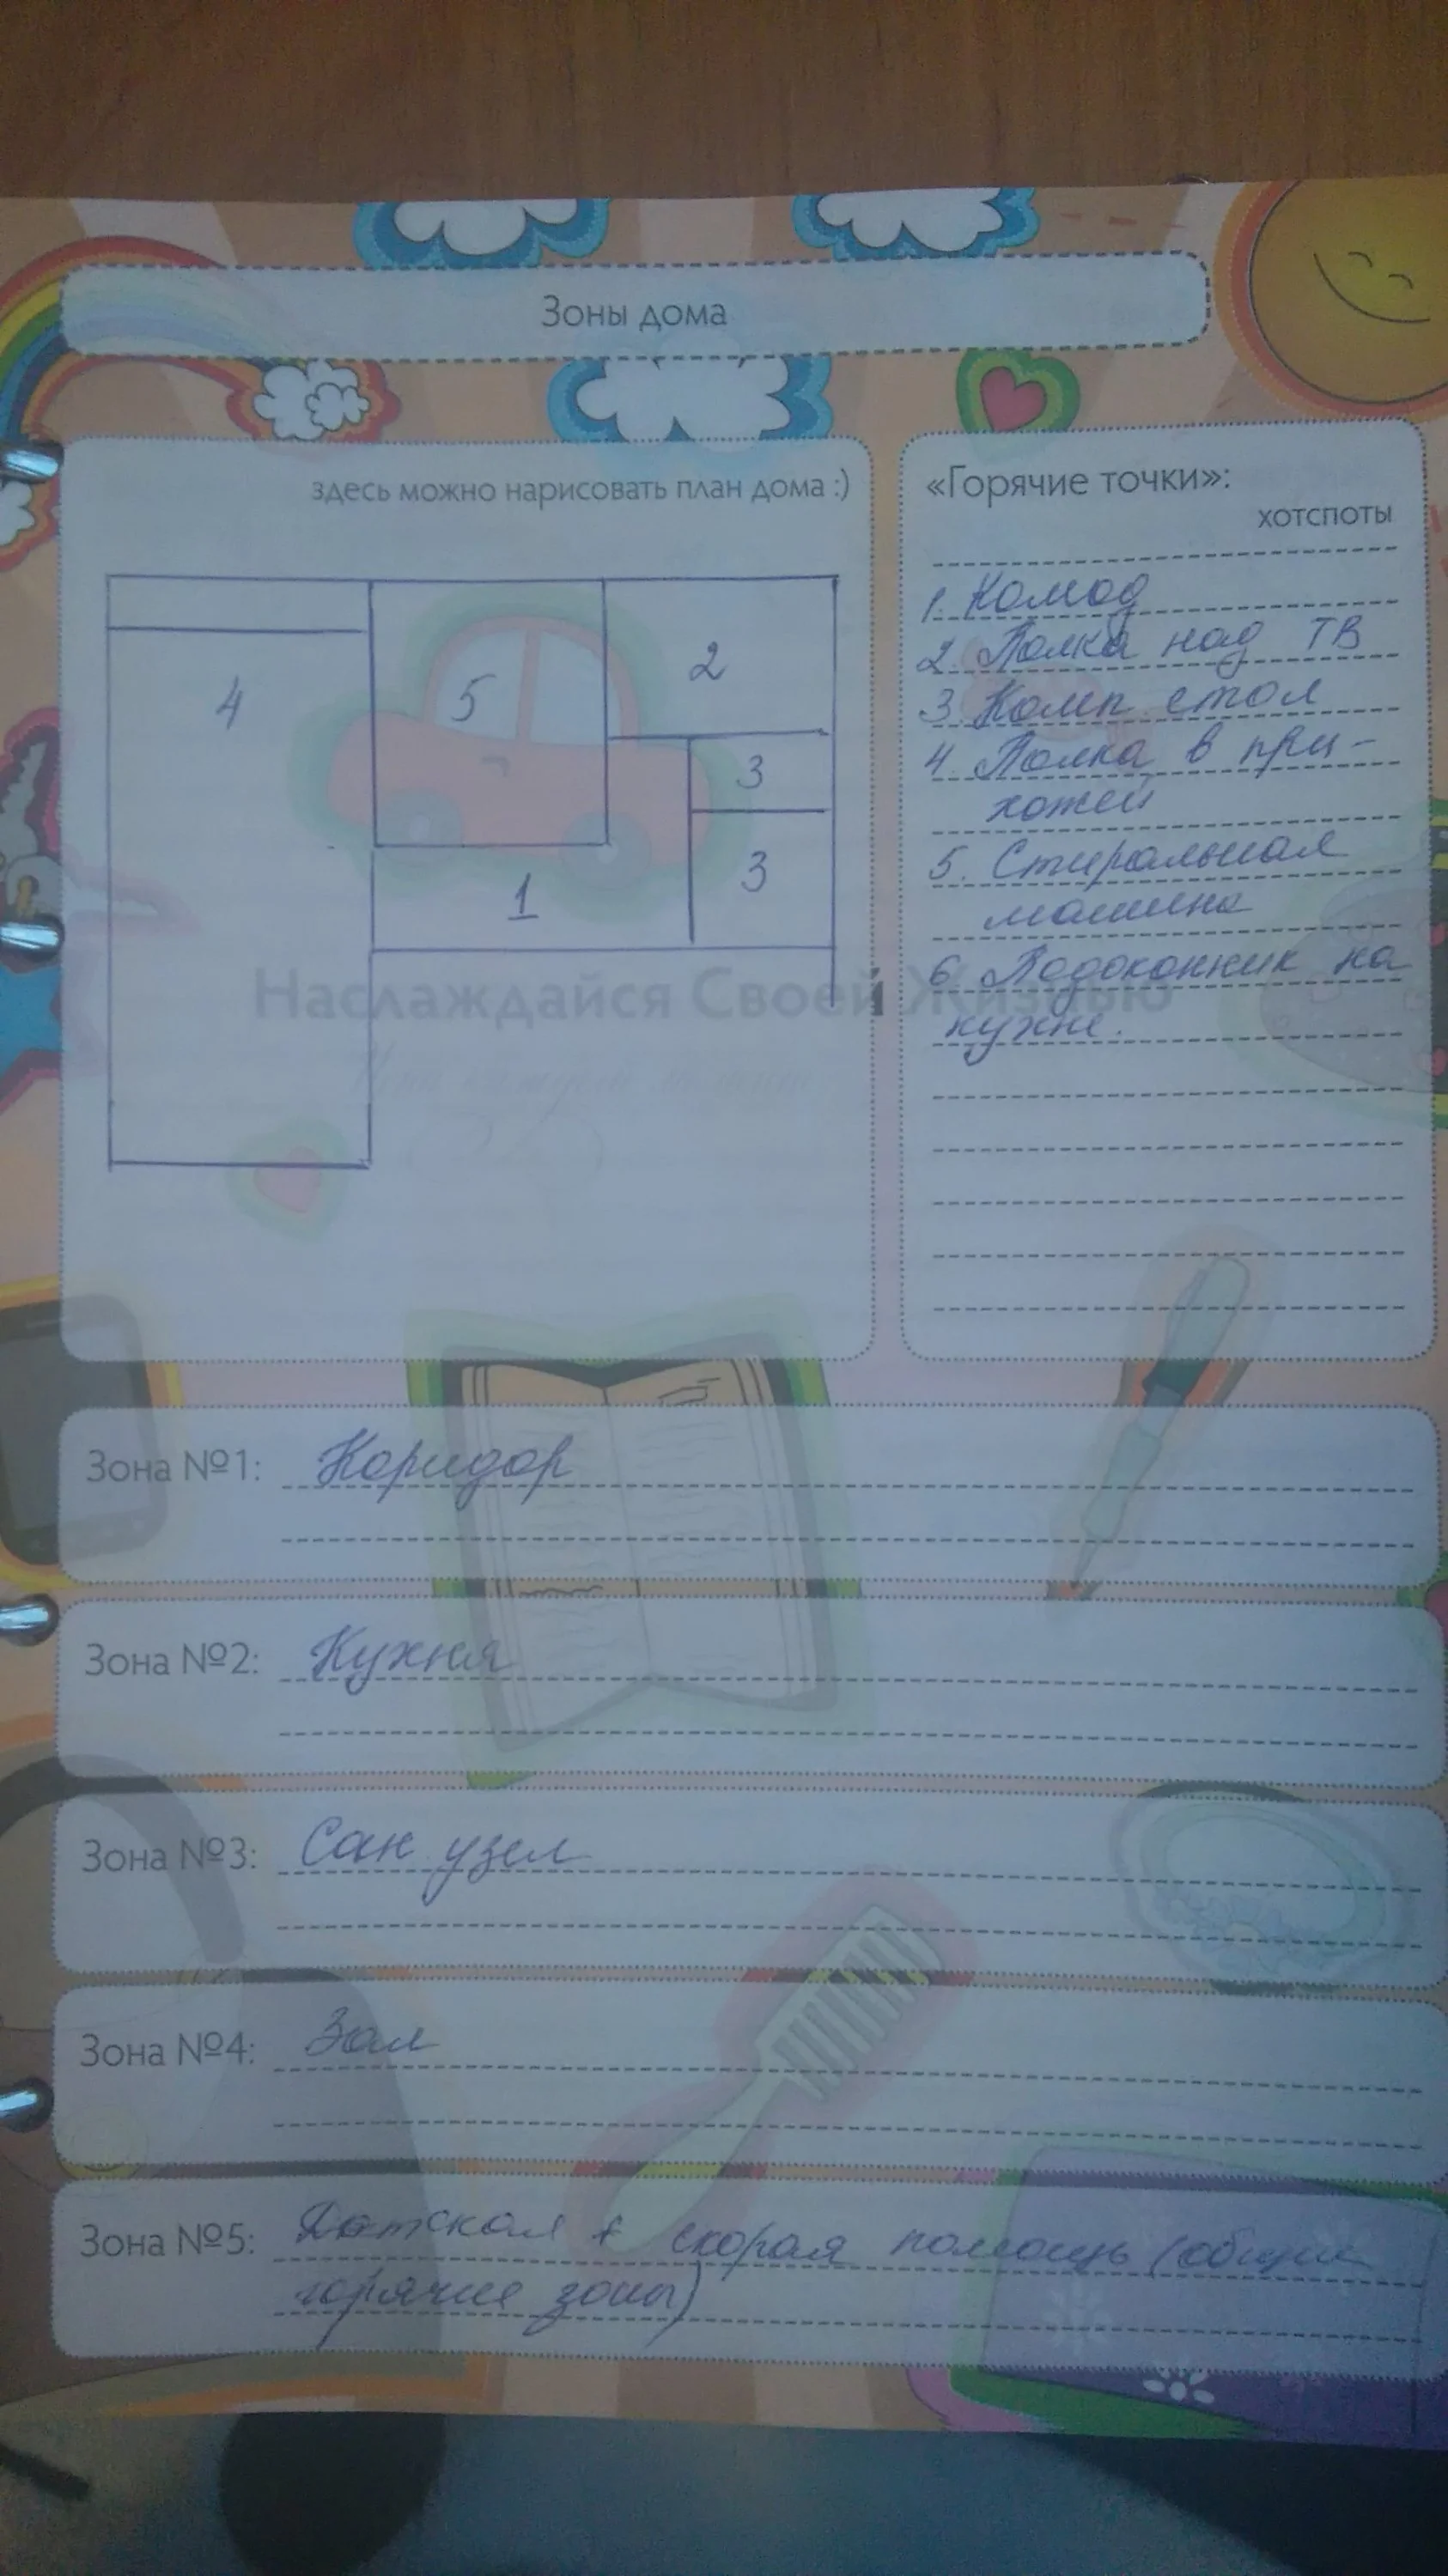 Зоны дома
здесь можно нарисовать план дома :)
4
5
2
3
3
1
Наслаждайся Своей Жизнью
«Горячие точки»:
хотспоты
1. Комод
2. Полка над ТВ
3. Комп. стол
4. Полка в при-
хожей
5. Стиральная
машина
6. Подоконник на
кухне.
Зона №1: Коридор
Зона №2: Кухня
Зона №3: Сан узел
Зона №4: Зал
Зона №5: Детская + скорая помощь (общие
горячие зоны)